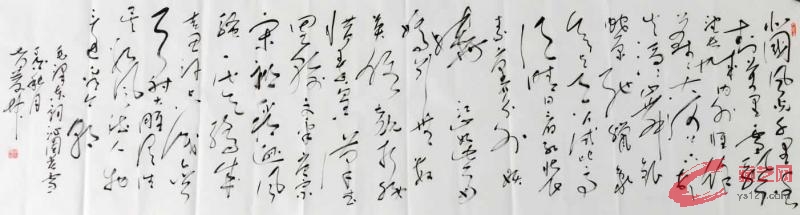 北国风光千里冰
封万里雪飘
望长城内外惟余
莽莽大河上下
顿失滔滔山舞银
蛇原驰蜡象
欲与天公试比高
须晴日看红装
素裹分外妖
娆江山如此多
娇引无数
英雄竞折腰
惜秦皇汉武
略输文采唐宗
宋祖稍逊风
骚一代天骄成
吉思汗只识弯
弓射大雕俱往
矣数风流人物
还看今朝
毛泽东词沁园春雪